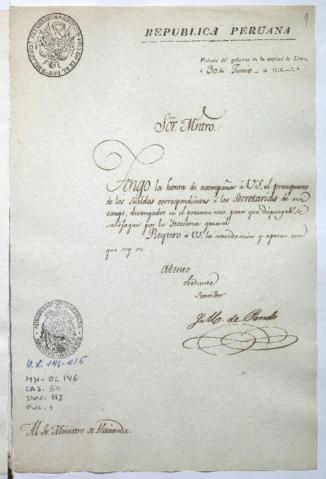 REPUBLICA PERUANA
Palacio del gobierno en la capital de Lima
á 30 de Junio de
Sōr. Mntro.
Tengo la honra de acompañar á VS. el presupuesto
de los sueldos correspondientes á las Secretarías de mi
cargo, devengados en el presente mes, para que disponga se
satisfagan por la Tesorería general.
Reytero á VS. la consideracion y aprecio con
que soy su
Atento
Servidor
J. M. de Pando
MH-OL 146
CAJ. 50
DOC. 112
FOL. 1
Al Sr. Ministro de Hacienda.